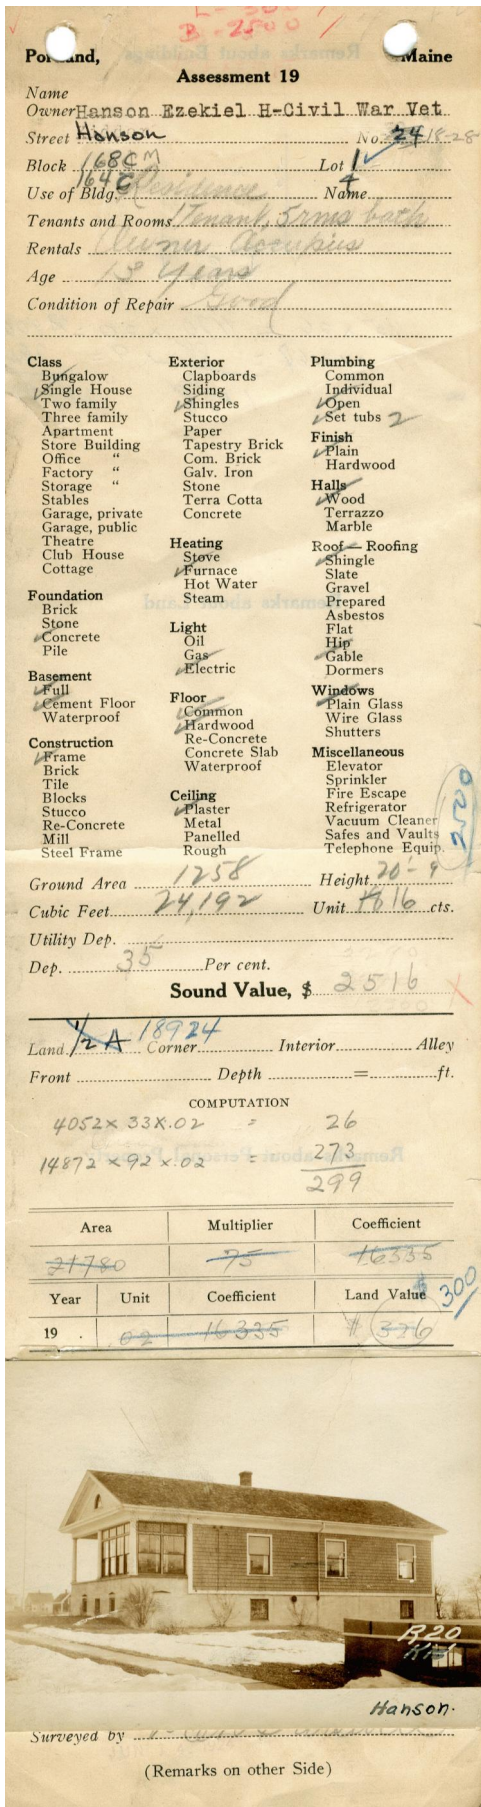 L-300
B-2500
Portland, Maine
Assessment 19
Name
Owner Hanson Ezekiel H-Civil War Vet
Street Hanson No. 24 18-28
Block 168C M Lot 1
164C 4
Use of Bldg. Residence Name
Tenants and Rooms 1 Tenant, 5 rms bath
Rentals Owner Occupies
Age 13 Years
Condition of Repair Good
Class
Bungalow
Single House
Two family
Three family
Apartment
Store Building
Office "
Factory "
Storage "
Stables
Garage, private
Garage, public
Theatre
Club House
Cottage
Foundation
Brick
Stone
Concrete
Pile
Basement
Full
Cement Floor
Waterproof
Construction
Frame
Brick
Tile
Blocks
Stucco
Re-Concrete
Mill
Steel Frame
Exterior
Clapboards
Siding
Shingles
Stucco
Paper
Tapestry Brick
Com. Brick
Galv. Iron
Stone
Terra Cotta
Concrete
Heating
Stove
Furnace
Hot Water
Steam
Light
Oil
Gas
Electric
Floor
Common
Hardwood
Re-Concrete
Concrete Slab
Waterproof
Ceiling
Plaster
Metal
Panelled
Rough
Plumbing
Common
Individual
Open
Set tubs 2
Finish
Plain
Hardwood
Halls
Wood
Terrazzo
Marble
Roof — Roofing
Shingle
Slate
Gravel
Prepared
Asbestos
Flat
Hip
Gable
Dormers
Windows
Plain Glass
Wire Glass
Shutters
Miscellaneous
Elevator
Sprinkler
Fire Escape
Refrigerator
Vacuum Cleaner
Safes and Vaults
Telephone Equip.
2500
Ground Area 1258 Height 20'-9
Cubic Feet 24,192 Unit 16 cts.
Utility Dep.
Dep. 35 Per cent.
Sound Value, $ 2516
Land 1/2 A 18924 Corner Interior Alley
Front Depth = ft.
COMPUTATION
4052 x 33 x .02 = 26
14872 x 92 x .02 = 273
299
Area Multiplier Coefficient
21780 75 16335
Year Unit Coefficient Land Value $ 300
19 . 02 16335 $ 326
R20
Hanson.
Surveyed by
(Remarks on other Side)